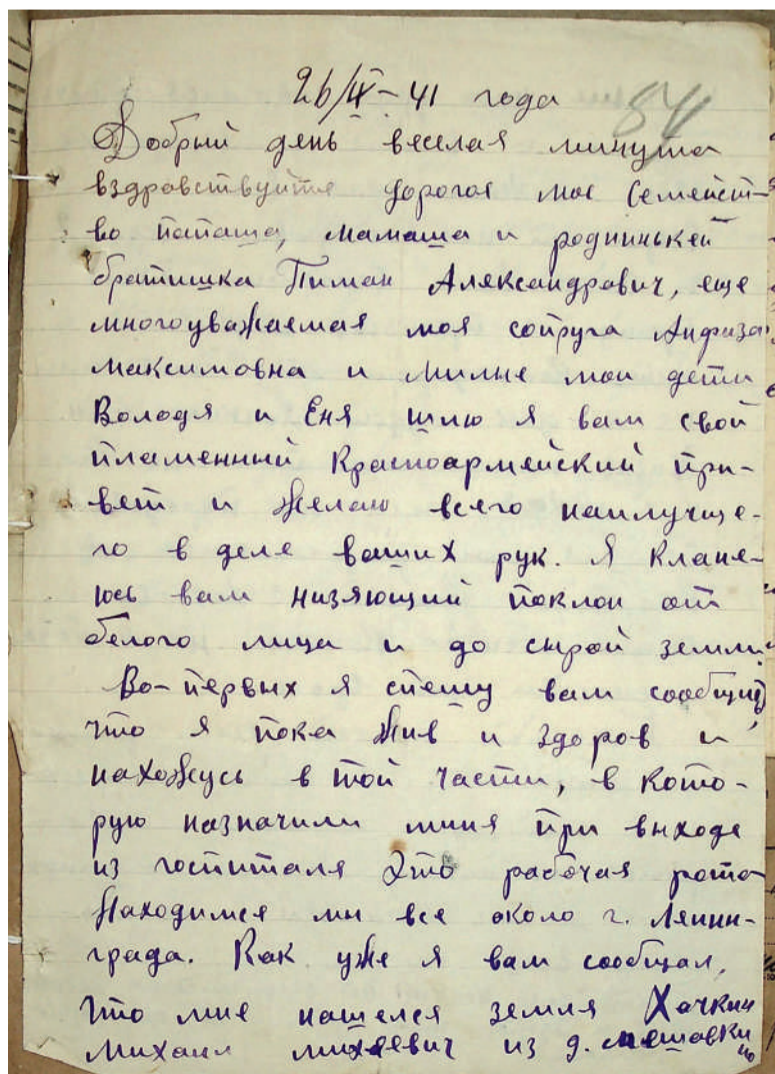 26/IX-41 года
84
Добрый день веселая минута
вздравствуйте дорогое мое Семейст-
во папаша, мамаша и роднинькей
братишка Пиман Александрович, еще
многоуважаемая моя супруга Анфиза
Максимовна и милые мои дети
Володя и Еня шлю я вам свой
пламенный Красноармейский при-
вет и желаю всего наилучше-
го в деле ваших рук. Я кланя-
юсь вам низяющий поклон от
белого лица и до сырой земли.
Во-первых я спешу вам сообщить
что я пока жив и здоров и
нахожусь в той части, в кото-
рую назначили миня при выходе
из госпиталя Это рабочая рота
Находимся мы все около г. Ленин-
града. Как уже я вам сообщал,
что мне нашелся земля Хачкин
Михаил Михеевич из д.